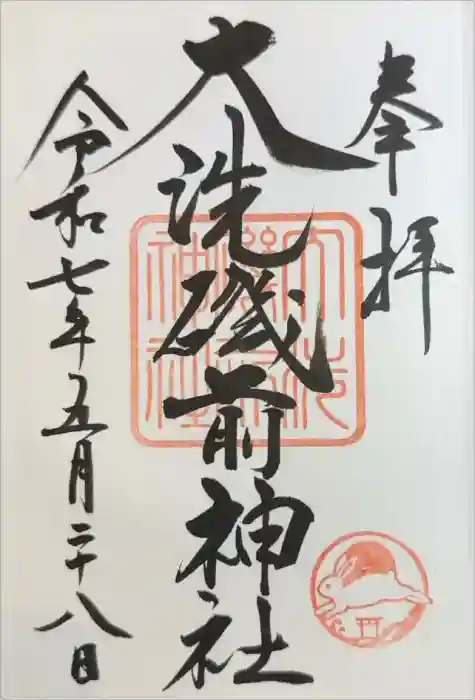 奉拝
大洗磯前神社
令和七年五月二十八日